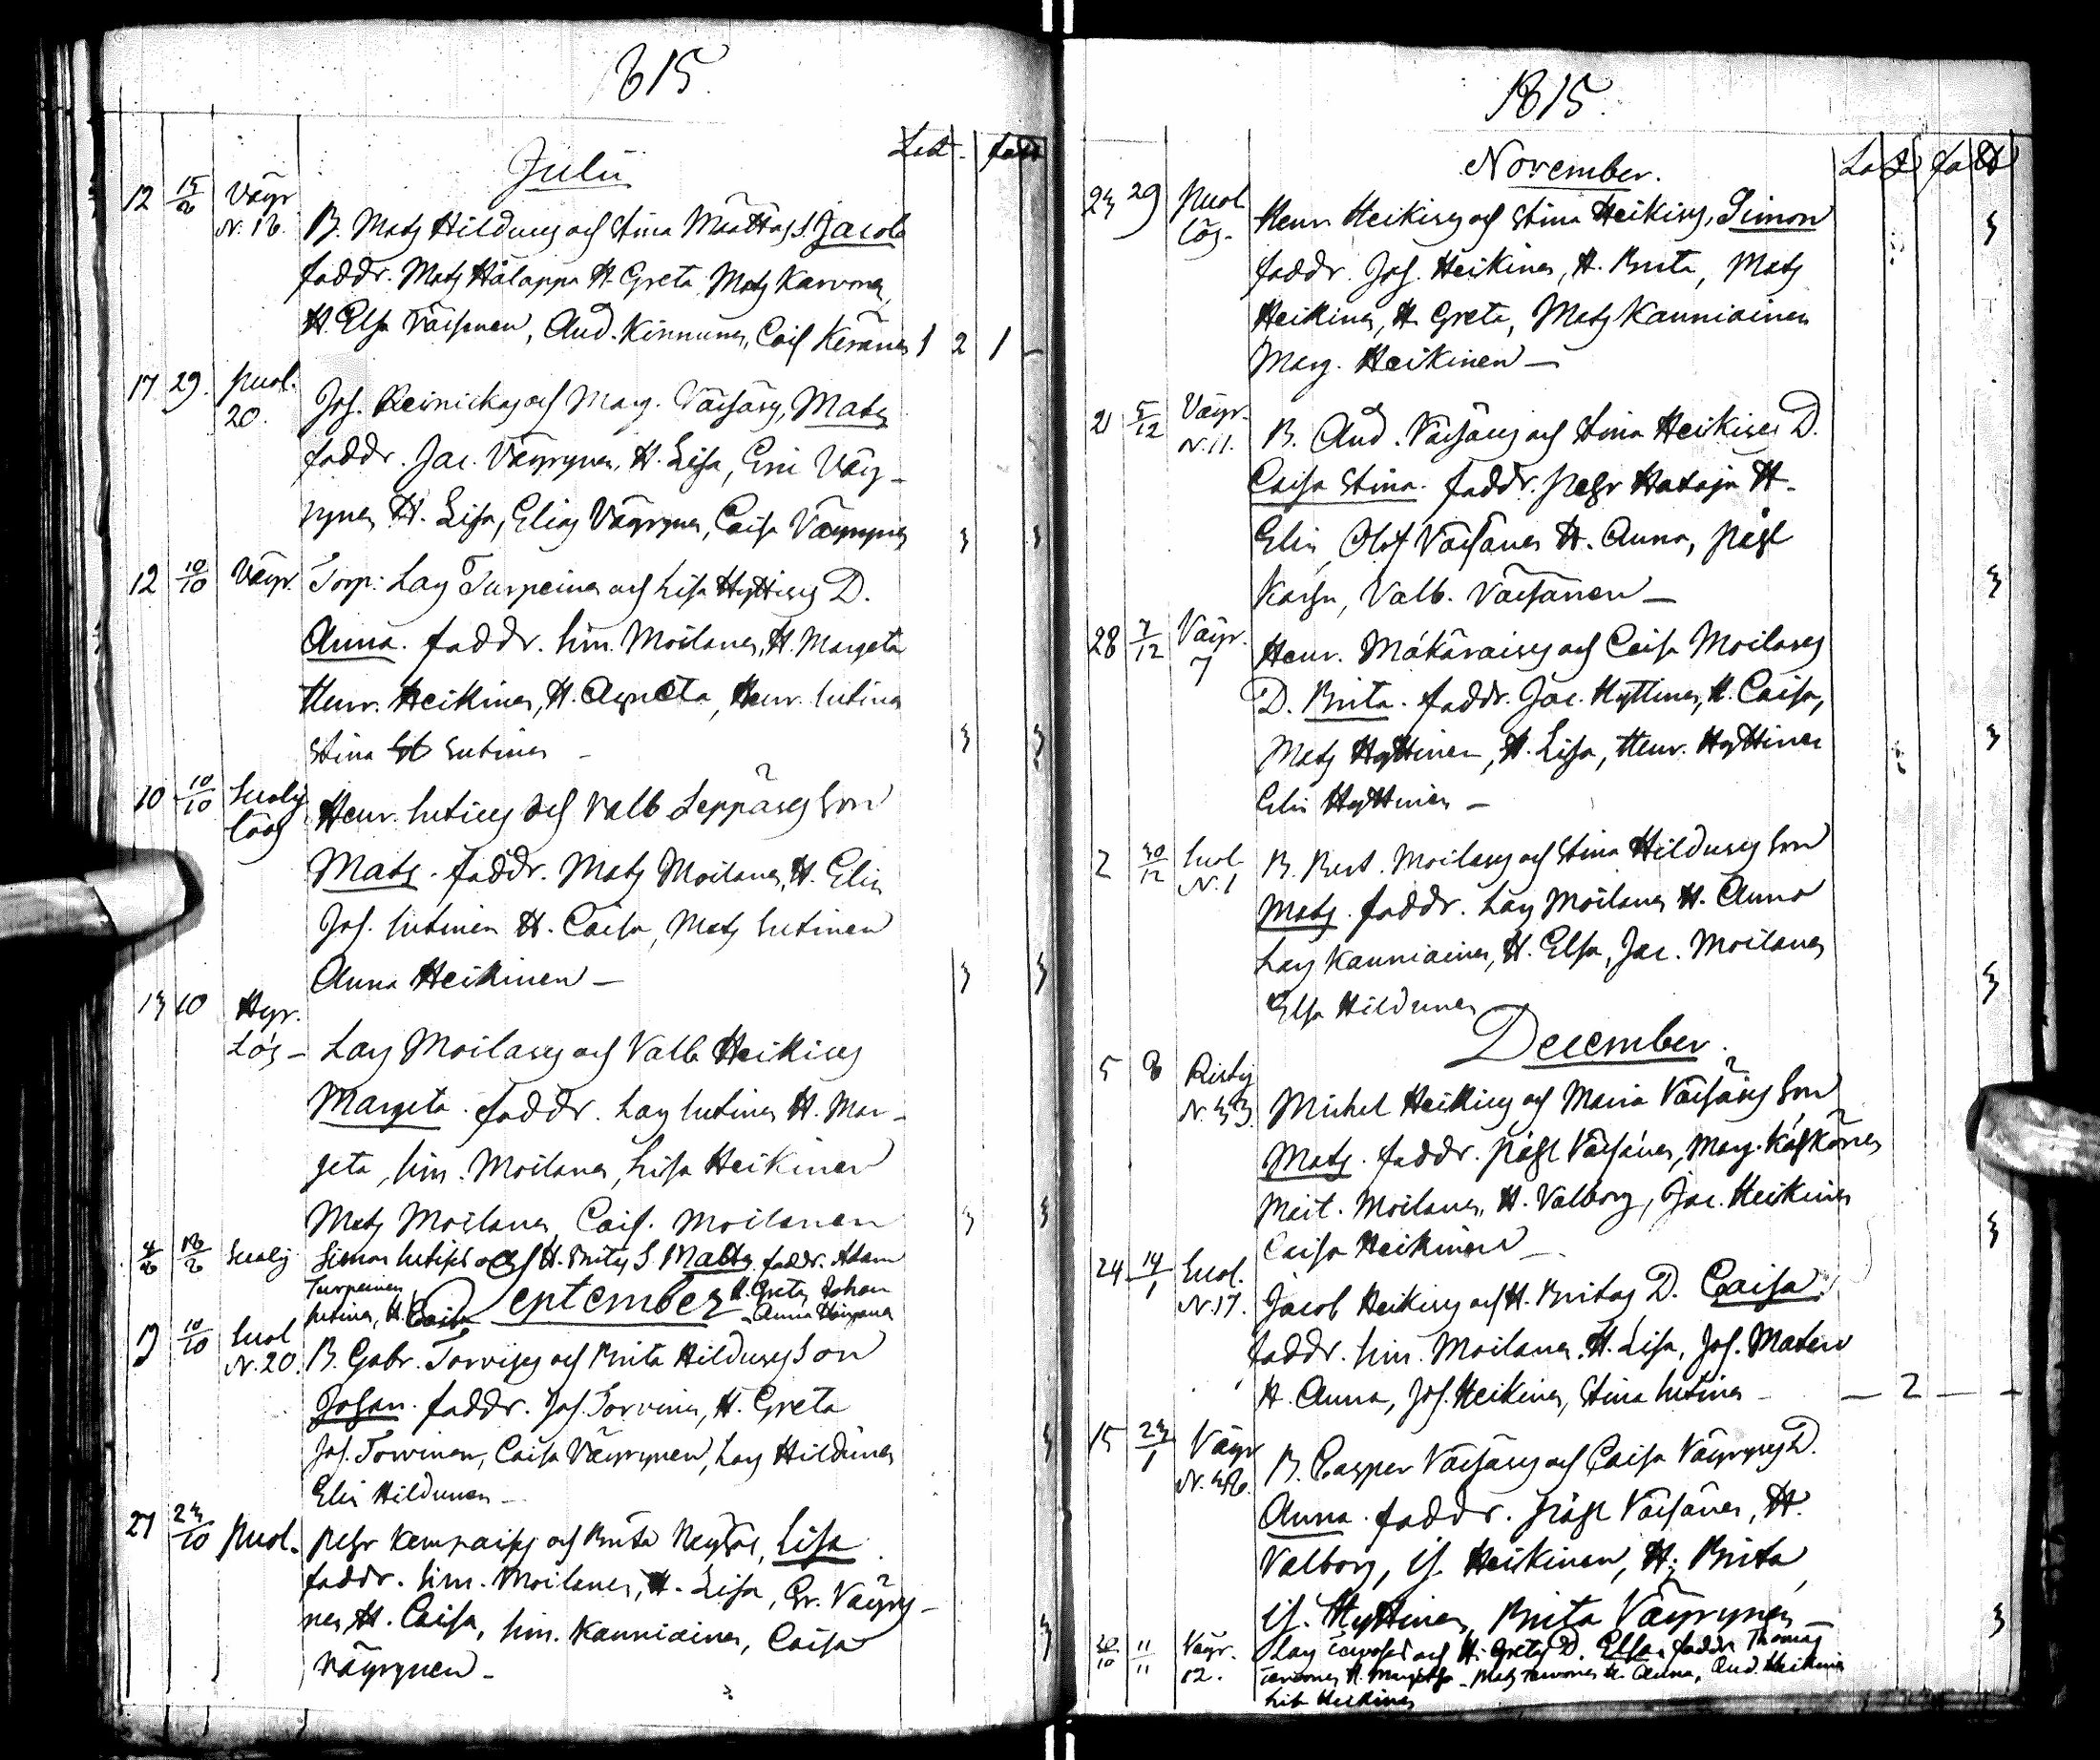 815.
Julii
Led. fadd
12 15/8 Väyr B. Matz Hilduns och Stina Määttas S. Jacob
N. 16. faddr. Matz Hälappa H. Greta, Matz Karvonen,
H. Elsa Väisenen, And. Kinnunen, Cais Keränen 1 2 1 –
17 29. Puol. Joh. Reinickas och Marg. Väisäns, Matz
20. faddr. Jac. Väyrynen, H. Lisa, Eric Väy-
rynen H. Lisa, Elias Väyrynen, Caisa Väyrynen 3 3
12 10/10 Väyr. Torp: Lars Turpeinens och Lisa Hyttines D.
Anna. faddr. Sim. Moilanen, H. Margeta
Henr. Heikinen, H. Agneta, Henr. Sutinen
Stina Sutinen – 3 3
10 10/10 Suolij Henr. Sutines och Valb Leppäns Son
Löös Matz. faddr. Matz Moilanen, H. Elin
Joh. Sutinen H. Caisa, Matz Sutinen
Anna Heikinen – 3 3
13 10 Hyr.
Lös – Lars Moilanes och Valb Heikines
Margeta. faddr. Lars Sutinen H. Mar-
geta, Sim. Moilanen, Lisa Heikinen
Matz Moilanen, Cais. Moilanen 3 3
4/8 18/8 Suolij Simon Sutises och H. Britas S. Matts. faddr. Adam
Turpeinen H. Greta, Johan
Sutinen, H. Caisa September Anna
9 10/10 Suol B. Gabr. Torvises och Brita Hilduns Son
N. 20. Johan. faddr. Joh. Torvinen, H. Greta
Joh. Torvinen, Caisa Väyrynen, Lars Hildunen
Elin Hildunen – 3
27 23/10 Puol. Pehr Kempaises och Brita Lisa
faddr. Sim. Moilanen, H. Lisa, Er. Väyry-
nen, H. Caisa, Sim. Kanniainen, Caisa 3
Väyrynen –
1815.
November.
Led fadd
23 29 Puol Henr. Heikines och Stina Heikines, Simon 3
Lös. faddr. Joh. Heikinen, H. Brita, Matz
Heikinen, H. Greta, Matz Kanniainen
Marg. Heikinen –
21 5/12 Väyr. B. And. Väisänes och Stina Heikines D.
N. 11. Caisa Stina. faddr. Pehr Hataja H.
Elin, Olof Väisänen H. Anna, Påhl
Valb. Väisänen – 3
28 7/12 Väyr. Henr. Mäkäraises och Caisa Moilanes
7 D. Brita. faddr. Jac. Hyttinen, H. Caisa,
Matz Hyttinen, H. Lisa, Henr. Hyttinen 3
Elin Hyttinen –
2 30/12 Suol B. Bert. Moilanes och Stina Hilduns Son
N. 1 Matz. faddr. Lars Moilanen H. Anna
Lars Kanniainen, H. Elsa, Jac. Moilanen
Elsa Hildunen 3
December.
5 8 Ristij Michel Heikines och Maria Väisäns Son
N. 33. Matz. faddr. Påhl Väisänen, Marg.
Moilanen, H. Valborg, Jac. Heikinen
Caisa Heikinen – 3
24 14/1 Suol. Jacob Heikines och H. Britas D. Caisa.
N. 17. faddr. Sim. Moilanen, H. Lisa, Joh. Maten
H. Anna, Joh. Heikinen, Stina Sutinen – – 2 – –
15 23/1 Väyr B. Casper Väisäns och Caisa Väyrynes D.
N. 36. Anna. faddr. Påhl Väisänen, H.
Valborg, Is. Heikinen, H. Brita
Is. Hyttinen, Brita Väyrynen – 3
30/10 11/11 Väyr. Lars och H. Gretas D. Elsa. faddr Thomas
12. H. Margeta. Matz H. Anna, And. Heikinen
Heikinen